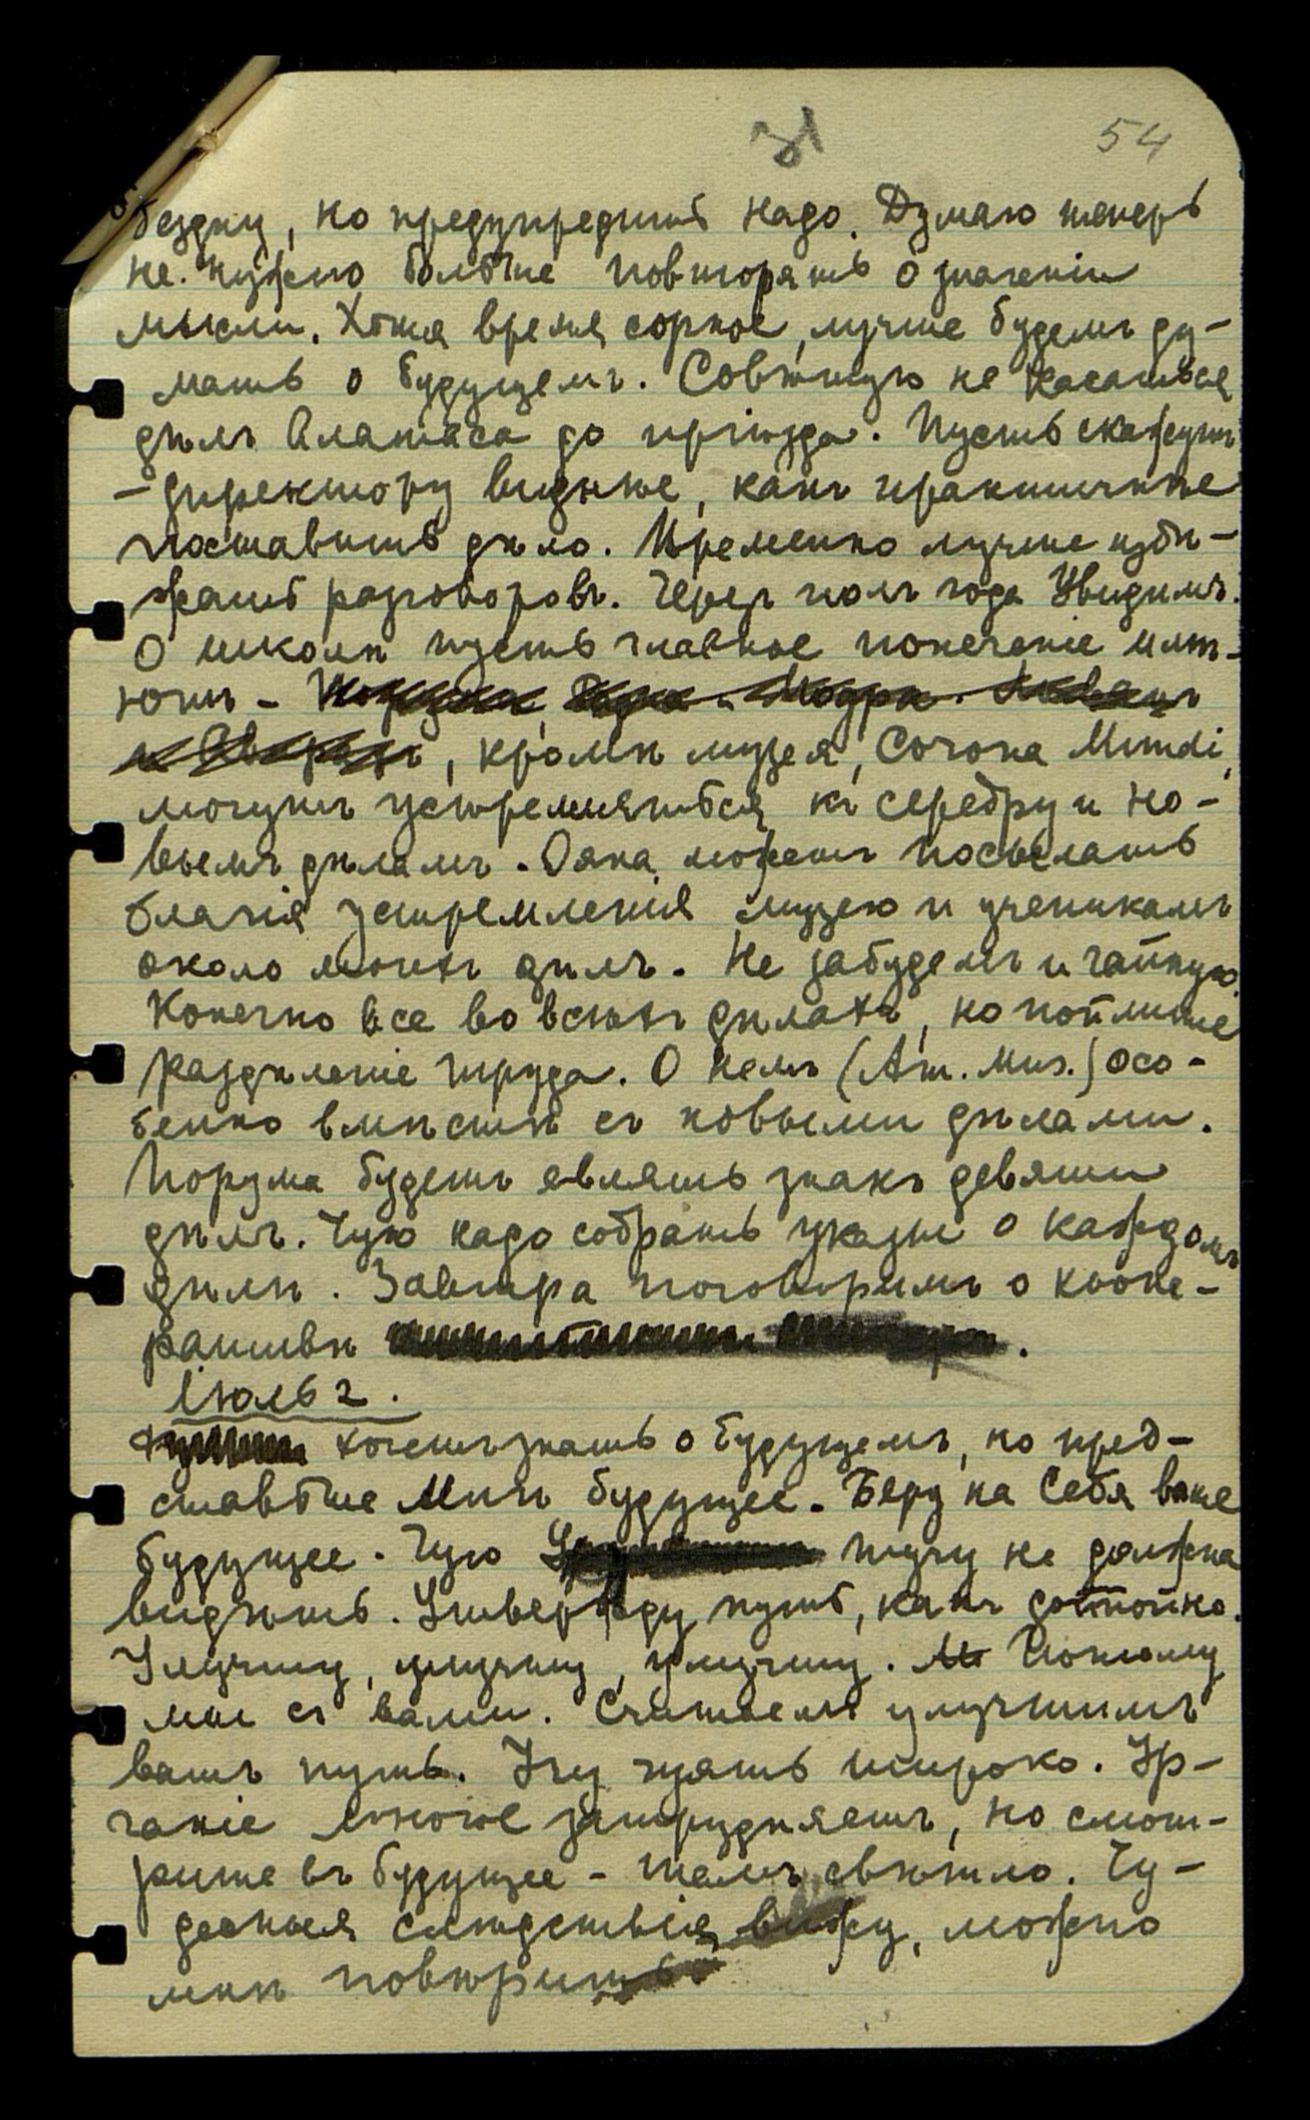 31
54
бездну, но предупредить надо. Думаю теперь
не нужно больше повторять о значеніи
мысли. Хотя время сорное, лучше будемъ ду-
мать о будущемъ. Совѣтую не касаться
дѣлъ Алатаса до пріѣзда. Пусть скажутъ
– директору виднѣе, какъ практичнѣе
поставить дѣло. Временно лучше избѣ-
жать разговоровъ. Черезъ полъ года увидимъ.
О школѣ пусть главное попеченіе имѣ-
ютъ –
, кромѣ музея, Corona Mundi,
могутъ устремляться къ серебру и но-
вымъ дѣламъ. Ояна можетъ посылать
благія устремленія музею и ученикамъ
около моихъ дѣлъ. Не забудемъ и чайную.
Конечно все во всѣхъ дѣлахъ, но поймите
раздѣленіе труда. О немъ (Ат. Миз.) осо-
бенно вмѣстѣ съ новыми дѣлами.
Порума будетъ являть знакъ девяти
дѣлъ. Чую надо собрать указы о каждомъ
дѣлѣ. Завтра поговоримъ о коопе-
ративѣ .
Іюль 2.
хочетъ знать о будущемъ, но пред-
ставьте Мнѣ будущее. Беру на Себя ваше
будущее. Чую тучу не должна
видѣть. Утвержду путь, какъ достойно.
Улучшу, улучшу, улучшу. Потому
мы съ вами. Считаемъ улучшимъ
вашъ путь. Учу чуять широко. Ур-
чаніе многое затрудняетъ, но смот-
рите въ будущее – тамъ свѣтло. Чу-
десныя слѣдствія вижу, можно
мнѣ повѣрить.